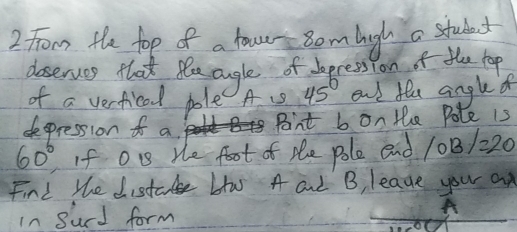 2. From the top of a tower 80m high a student
observes that the angle of depression of the top
of a vertical pole A is 45° and the angle of
depression of a point b on the Pole is
60°, if O is the foot of the pole and /OB/=20
Find the distance btw A and B, leave your
in surd form
A